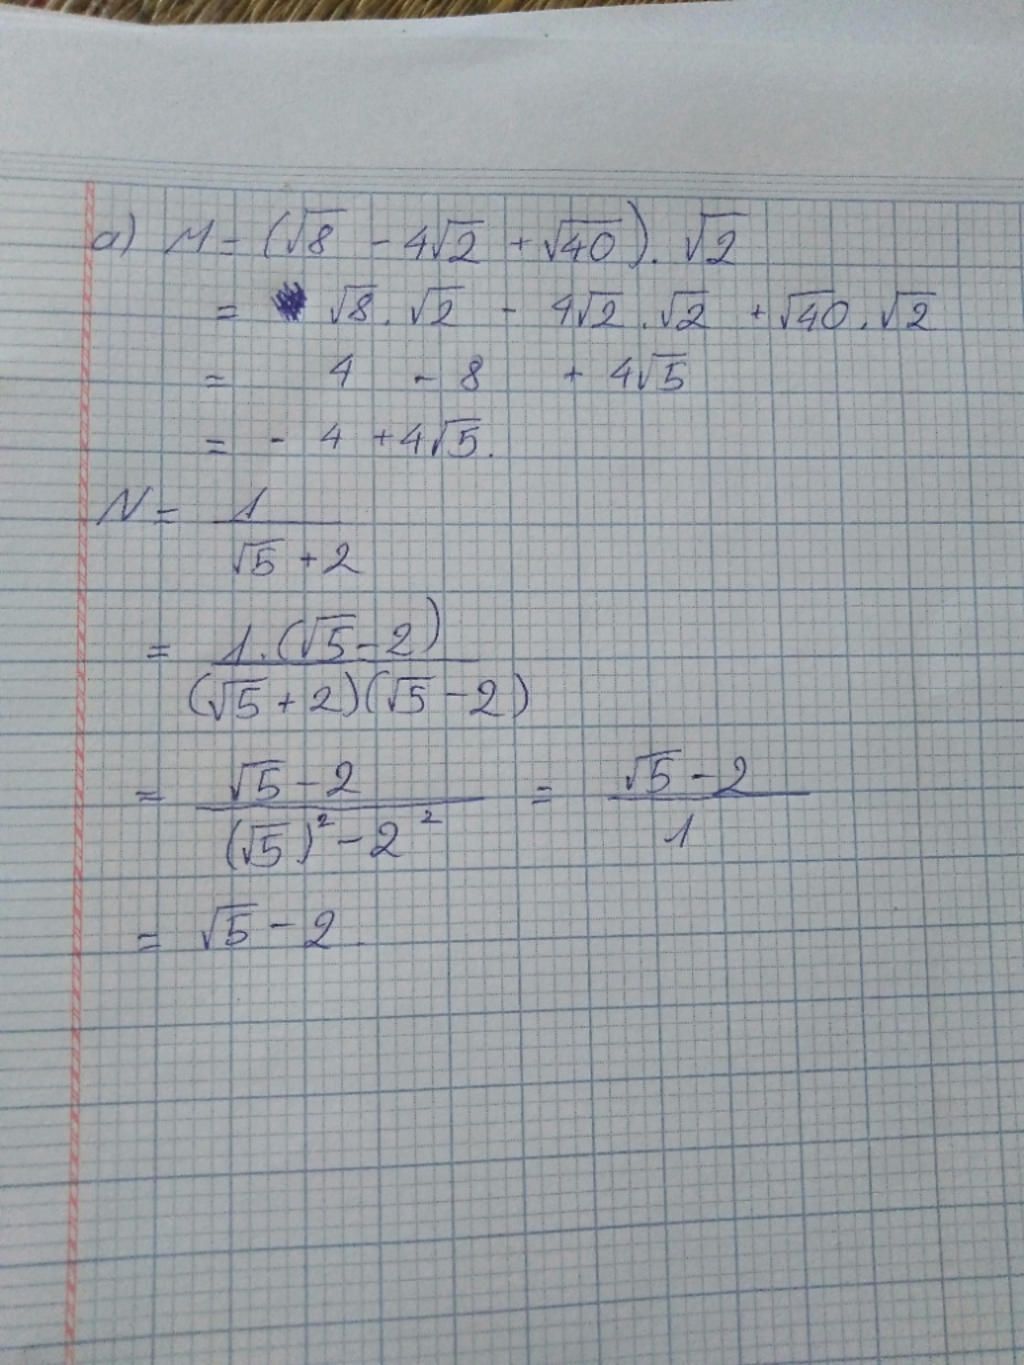 a) M = (√8 - 4√2 + √40). √2
= √8. √2 - 4√2 . √2 + √40 . √2
= 4 - 8 + 4√5
= - 4 + 4√5.
N = 1 / (√5 + 2)
= 1.(√5 - 2) / (√5 + 2)(√5 - 2)
= (√5 - 2) / ((√5)² - 2²) = (√5 - 2) / 1
= √5 - 2.